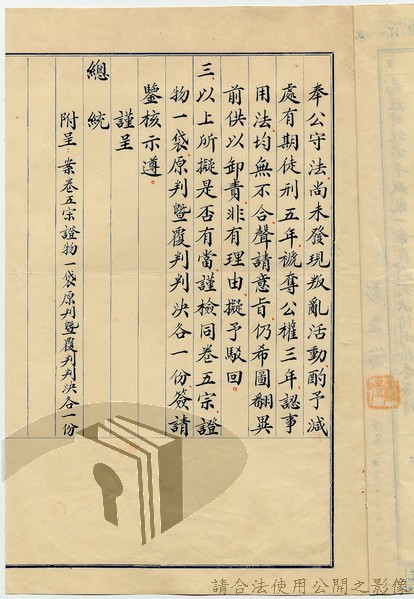 奉公守法，尚未發現叛亂活動，酌予減
處有期徒刑五年，褫奪公權三年，認事
用法，均無不合，聲請意旨仍希圖翻異
前供，以卸責，非有理由，擬予駁回。
三、以上所擬是否有當，謹檢同卷五宗、證
物一袋、原判暨覆判判決各一份，簽請
鑒核示遵。
謹呈
總統
附呈：案卷五宗證物一袋原判暨覆判判決各一份
請合法使用公開之影像